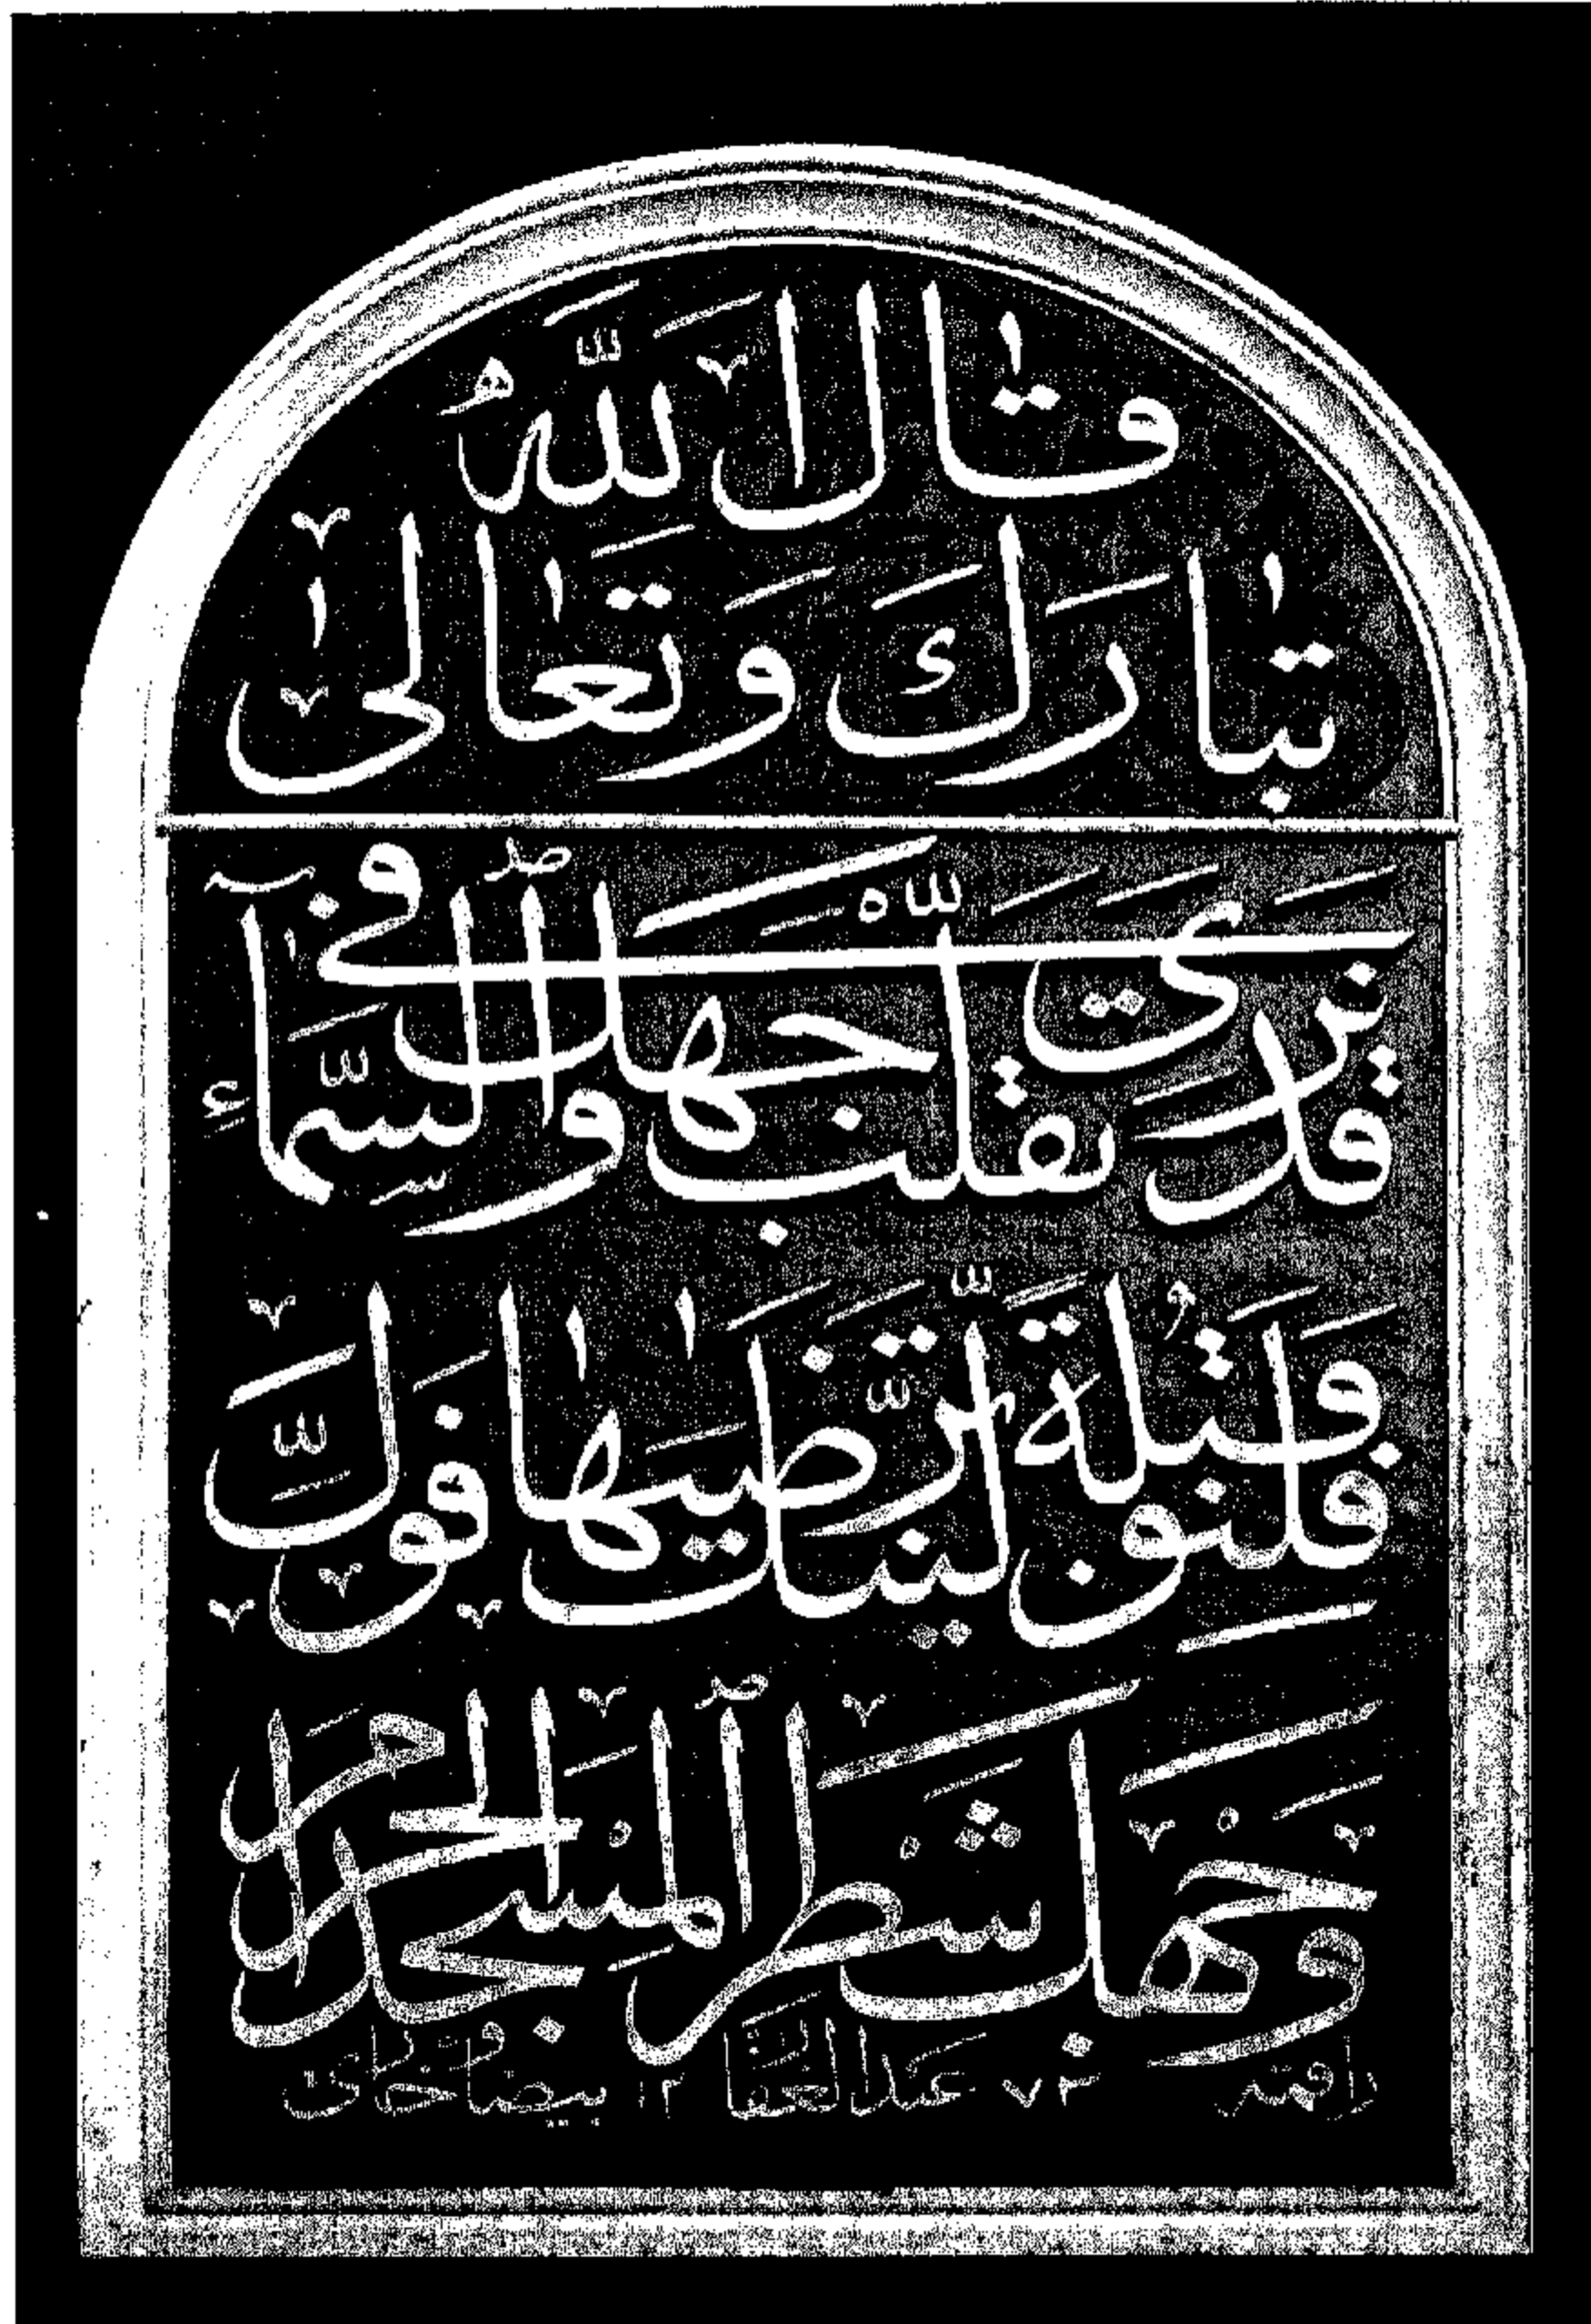 قال الله
تبارك وتعالى
قد نرى تقلب وجهك في السماء
فلنولينك قبلة ترضيها فول
وجهك شطر المسجد الحرام